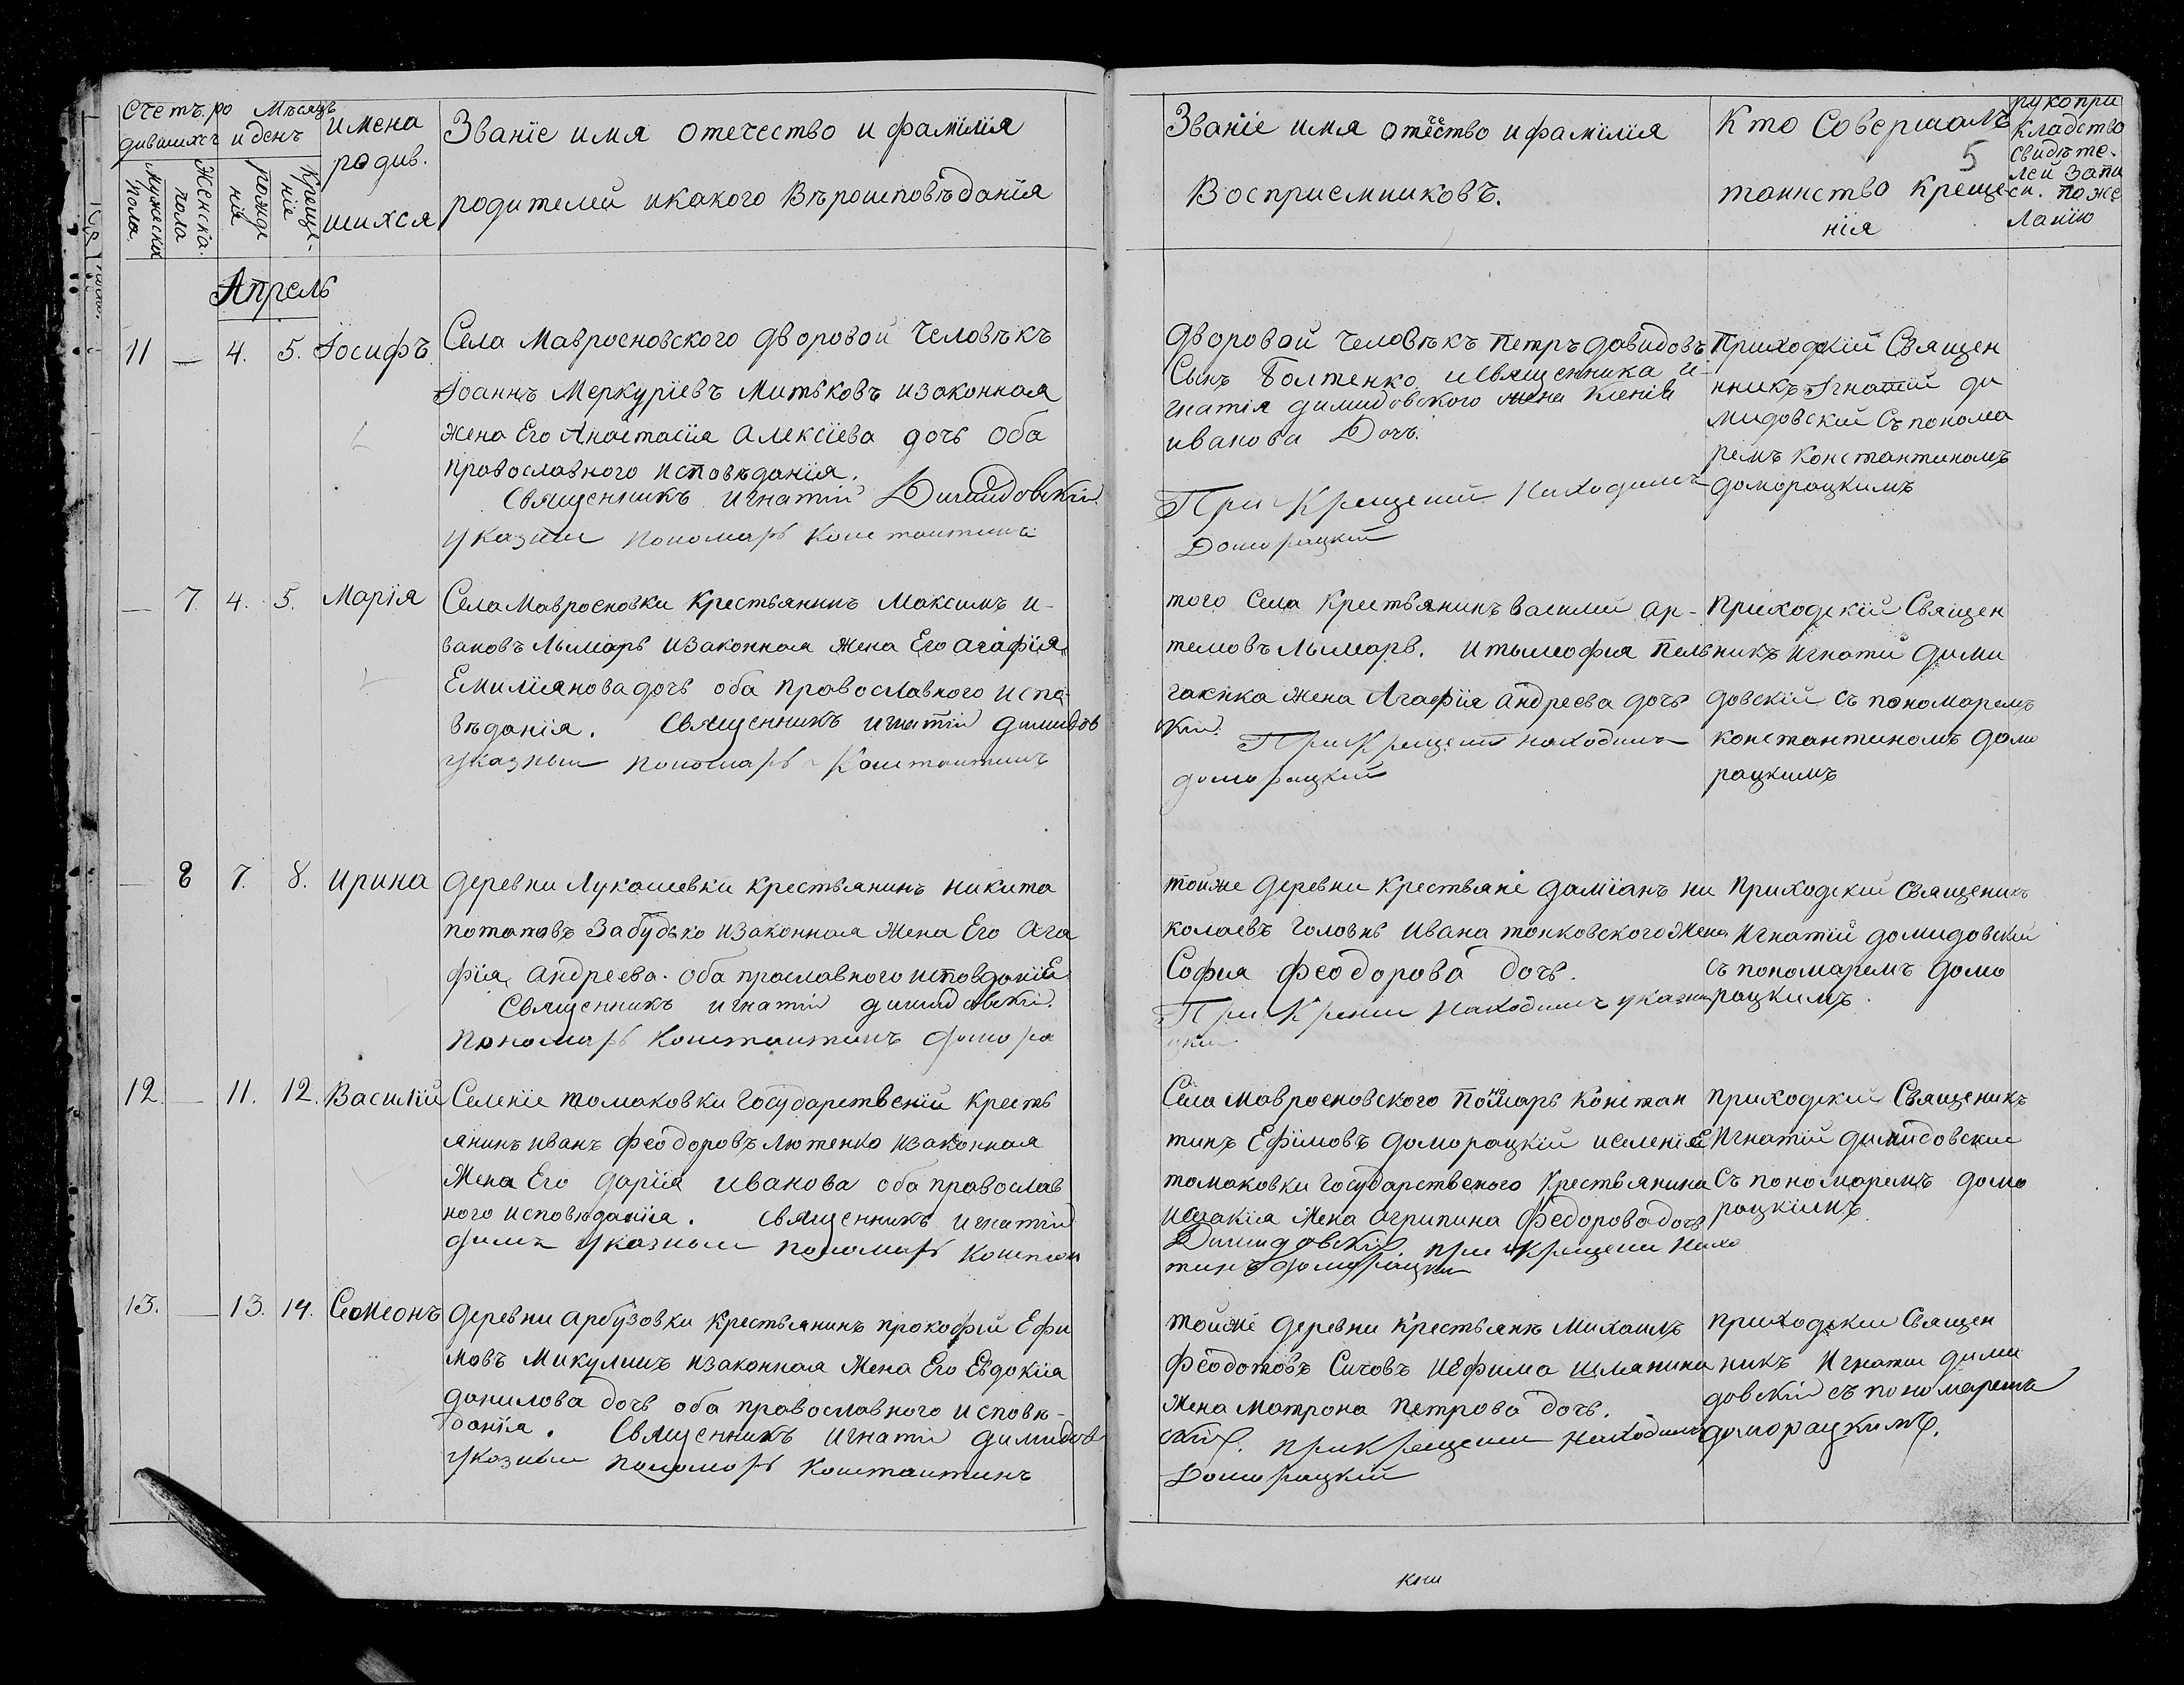 Счетъ ро
дившихъ
Мѣсяцъ
и денъ
имена
родив.
шихся
Званіе имя отечество и фамилія
родителей и какого Вѣроисповѣданія
мужеска
пола
Женска.
пола
рожде
нія
Креще-
ніе
Званіе имя отечество и фамилія
Восприемниковъ.
Кто Совершалъ
5
таинство Креще-
нія
рукопри
кладство
свидѣте.
лей запи
си. поже
ланію
Апрель
11 — 4. 5. Іосифъ
Села Мавроеновского дворовой Человѣкъ
Іоаннъ Меркуріевъ Митьковъ изаконная
жена Его Анастасія Алексіева дочь Оба
православного исповѣданія.
Священникъ Игнатій Димидовскій
указный пономарь Константинъ
дворовой Человѣкъ Петръ давидовъ
Сынъ Болтенко исвященника и-
гнатія димидовского жена Ксенія
иванова Дочь.
При Крещеніи находился
Доморацкій
Приходскій Священ
нникъ Игнатій ди
мидовскій Съ понома
ремъ Константиномъ
доморацкимъ
— 7. 4. 5. Марія
Села Мавроеновки Крестьянинъ Максимъ и-
вановъ Лымарь изаконная жена Его агафія
Емиліянова дочь оба православного испо
вѣданія. Священникъ игнатій димидов
указный пономарь Константинъ
того Села Крестьянинъ василий ар-
темовъ Лымарь. итимофия Пель
гасика жена Агафія андреева дочь
скій. При Крещеніи находился
доморацкій
приходскій Священ
никъ игнатий дими
довскій съ пономаремъ
константиномъ домо
рацкимъ
— 8 7. 8. ирина
деревни Лукашевки крестьянинъ никита
потаповъ Забудько изаконная жена Его Ага
фія андреева. оба праславного исповданіе
Священникъ игнатій димидовскій.
Пономарь Константинъ домора
тойже деревни крестьяне даміанъ ни
колаевъ головнь ивана тонковского жена
София феодорова дочь.
При Крении находился указны
цкий
Приходский Священикъ
Игнатій домидовский
съ пономаремъ домо
рацкимъ.
12. — 11. 12. Василій
Селеніе томаковки государственій кресть
янинъ иванъ феодоровъ лютенко изаконная
Жена Его дарія иванова оба православ
ного исповѣданія. священникъ игнатій
димъ указный пономарь констан
Села мавроеновского пономарь констан
тинъ Ефимовъ доморацкій иселеніе
томаковки государственого крестьянина
исаакія жена агрипина федорова дочь
Димидовскій. при крещении нахо
тинъ доморацкий
приходский Священикъ
Игнатій димидовский
Съ пономаремъ домо
рацкімъ
13. — 13. 14. Семеонъ
деревни арбузовки крестьянинъ прокофій Ефи
мовъ Микулинъ изаконная жена Его Евдокія
данилова дочь оба православного исповѣ-
данія. Священникъ игнатій димидов
указный пономарь константинъ
тойже деревни крестьянъ михаилъ
феодотовъ Сичовъ иефима шлянина
жена матрона петрова дочь.
скій. при крещении находился
Доморацкій
приходский Священ
никъ Игнатий дими
довскій съ пономаремъ
доморацкимъ.